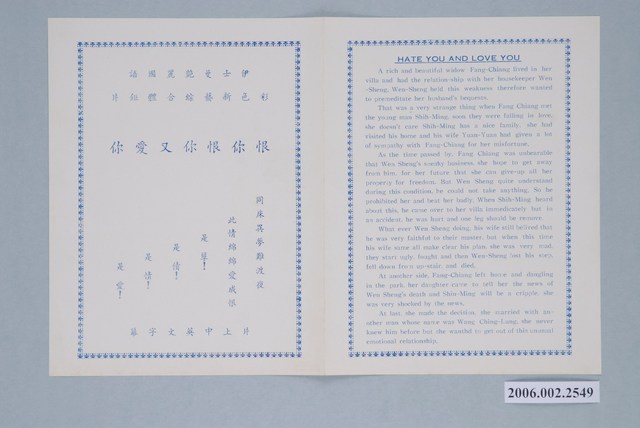 伊士曼艷麗國語
彩色新藝綜合體鉅片
恨你恨你又愛你
同床異夢難渡夜
此情綿綿愛成恨
是孽!
是債!
是情!
是愛!
片上中英文字幕
HATE YOU AND LOVE YOU
A rich and beautiful widow Fang-Chiang lived in her
villa and had the relation-ship with her housekeeper Wen
-Sheng. Wen-Sheng held this weakness therefore wanted
to premeditate her husband's bequests.
That was a very strange thing when Fang-Chiang met
the young man Shih-Ming, soon they were falling in love,
she doesn't care Shih-Ming has a nice family, she had
visited his home and his wife Yuan-Yuan had given a lot
of sympathy with Fang-Chiang for her misfortune.
As the time passed by, Fang Chiang was unbearable
that Wen Sheng's sneaky business, she hope to get away
from him, for her future that she can give-up all her
property for freedom. But Wen Sheng quite understand
during this condition, he could not take anything. So he
prohibited her and beat her badly. When Shih-Ming heard
about this, he came over to her villa immediately but in
an accident, he was hurt and one leg should be remove.
What ever Wen Sheng doing, his wife still belived that
he was very faithful in their manner, but when this time
his wife were all make clear his plan, she was very mad,
they start ugly, fought and then Wen-Sheng lost his step,
fell down from up-stair, and died.
At another side, Fang-Chiang left home and dangling
in the park, her daughter came to tell her the news of
Wen Sheng's death and Shin-Ming will be a cripple, she
was very shocked by the news.
At last, she made the decision, she married with an-
other man whose name was Wang Ching-Lung, she never
knew him before but she wanted to get out of this unusual
emotional relationship.
2006.002.2549